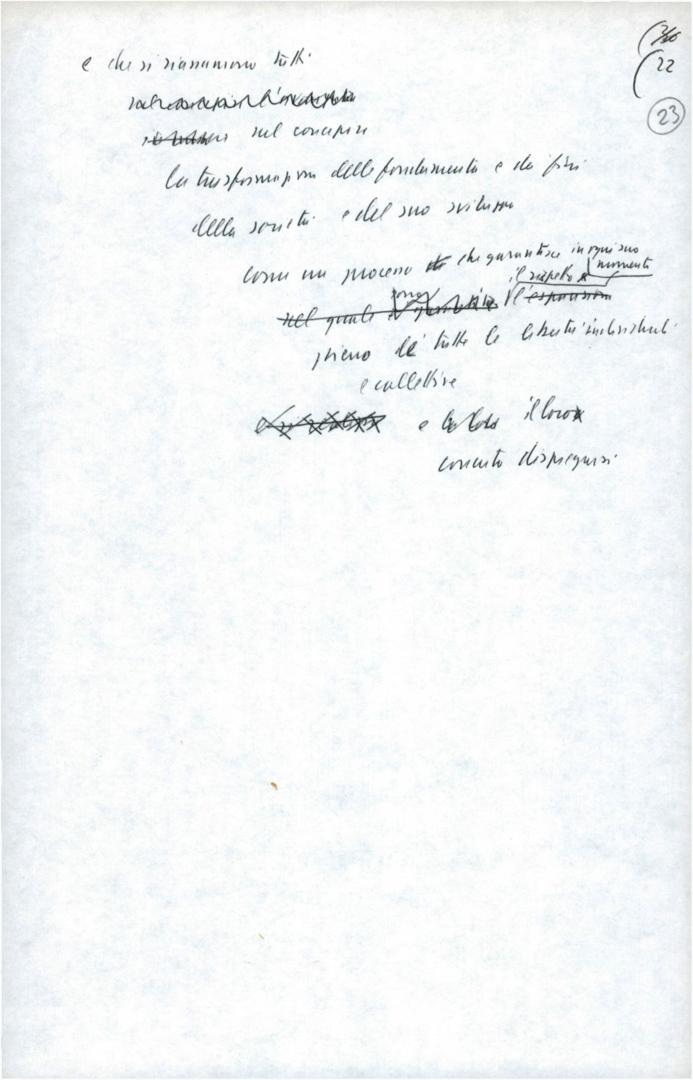 22
23
e che si riassumono tutti
nel concepire
la trasformazione delle fondamenta e dei fini
della società e del suo sviluppo
come un processo che garantisce in ogni suo
momento
il rispetto
nel quale l'espansione
pieno di tutte le libertà individuali
e collettive
e il loro
concreto dispiegarsi